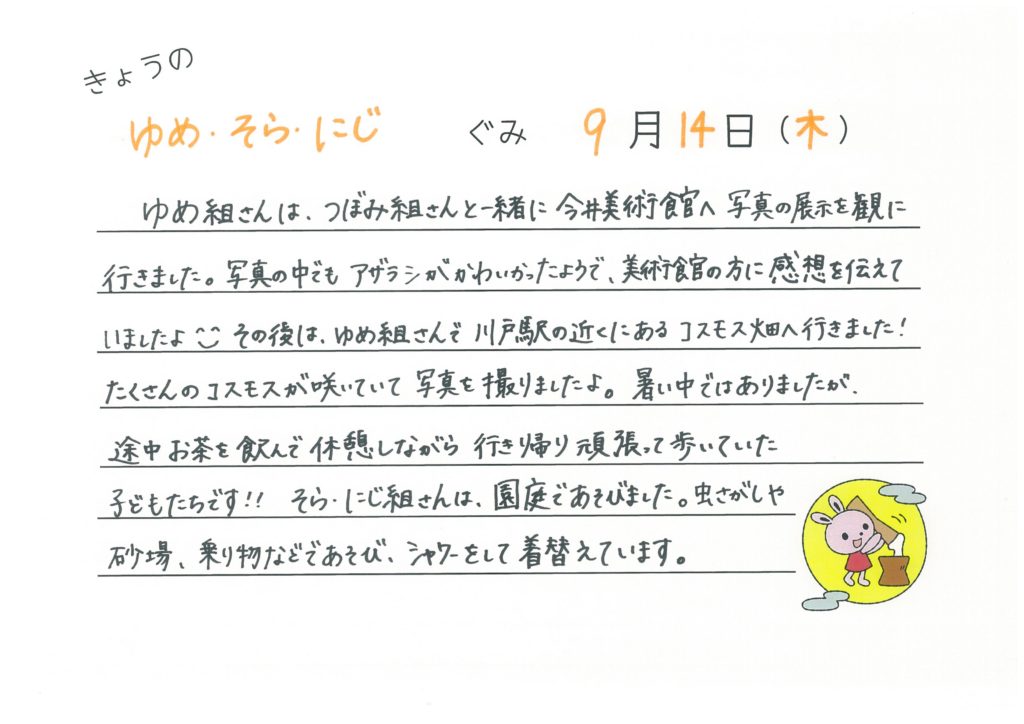 きょうの
ゆめ・そら・にじ ぐみ 9月14日(木)
ゆめ組さんは、つぼみ組さんと一緒に今井美術館へ写真の展示を観に
行きました。写真の中でもアザラシがかわいかったようで、美術館の方に感想を伝えて
いましたよ その後は、ゆめ組さんで川戸駅の近くにあるコスモス畑へ行きました!
たくさんのコスモスが咲いていて写真を撮りましたよ。暑い中ではありましたが、
途中お茶を飲んで休憩しながら行き帰り頑張って歩いていた
子どもたちです!! そら・にじ組さんは、園庭であそびました。虫さがしや
砂場、乗り物などであそび、シャワーをして着替えています。